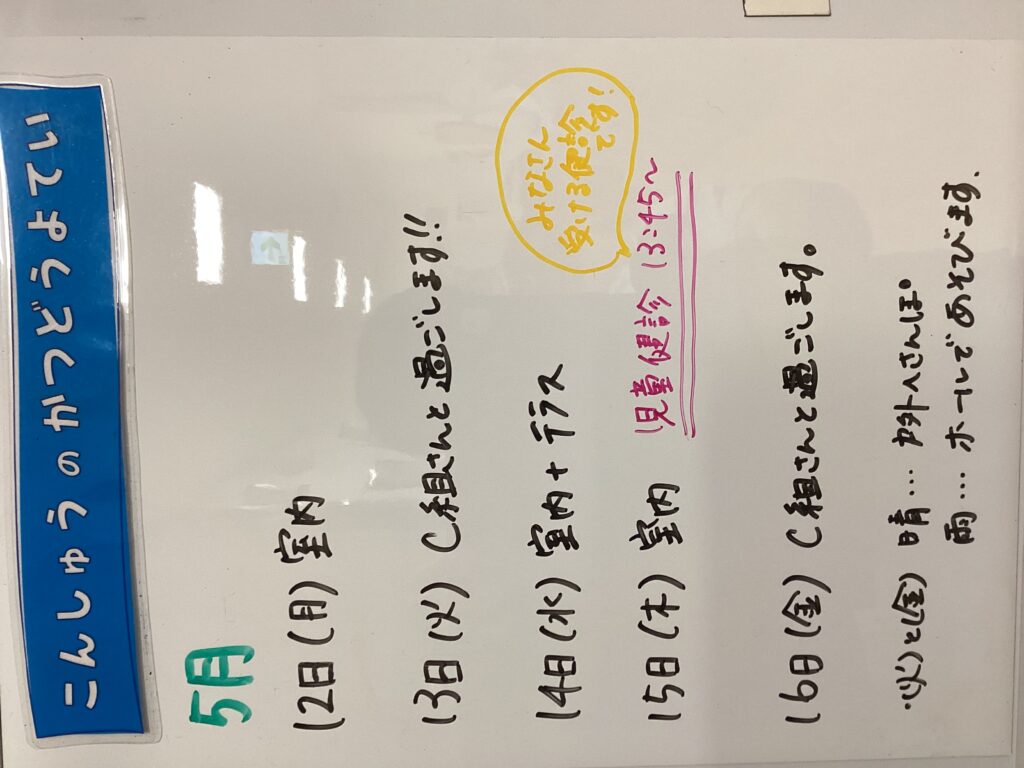 こんしゅうのかつどうよてい
5月
12日(月) 室内
13日(火) C組さんと過ごします!!
14日(水) 室内+テラス
みなさん
受ける健診
です!
15日(木) 室内 児童健診 13:45~
16日(金) C組さんと過ごします。
・(火)と(金) 晴… 戸外へさんぽ。
雨… ホールであそびます。